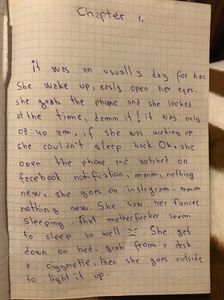 Chapter 1.
it was an usually day for her.
She wake up, easly open her eyes.
she grab the phone and she looked
at the time, damm it! it was only
08:40 am, if she was waking up
she couldn't sleep back. Ok, she
open the phone and watchet on
facebook notification, mmmm, nothing
new, she goes on instagram. mmmm
nothing new. She saw her fiancee
sleeping, that motherfucker seem
to sleep so well. She get
down on bed, grab from a desk
a cigarette, then she goes outside
to light it up.